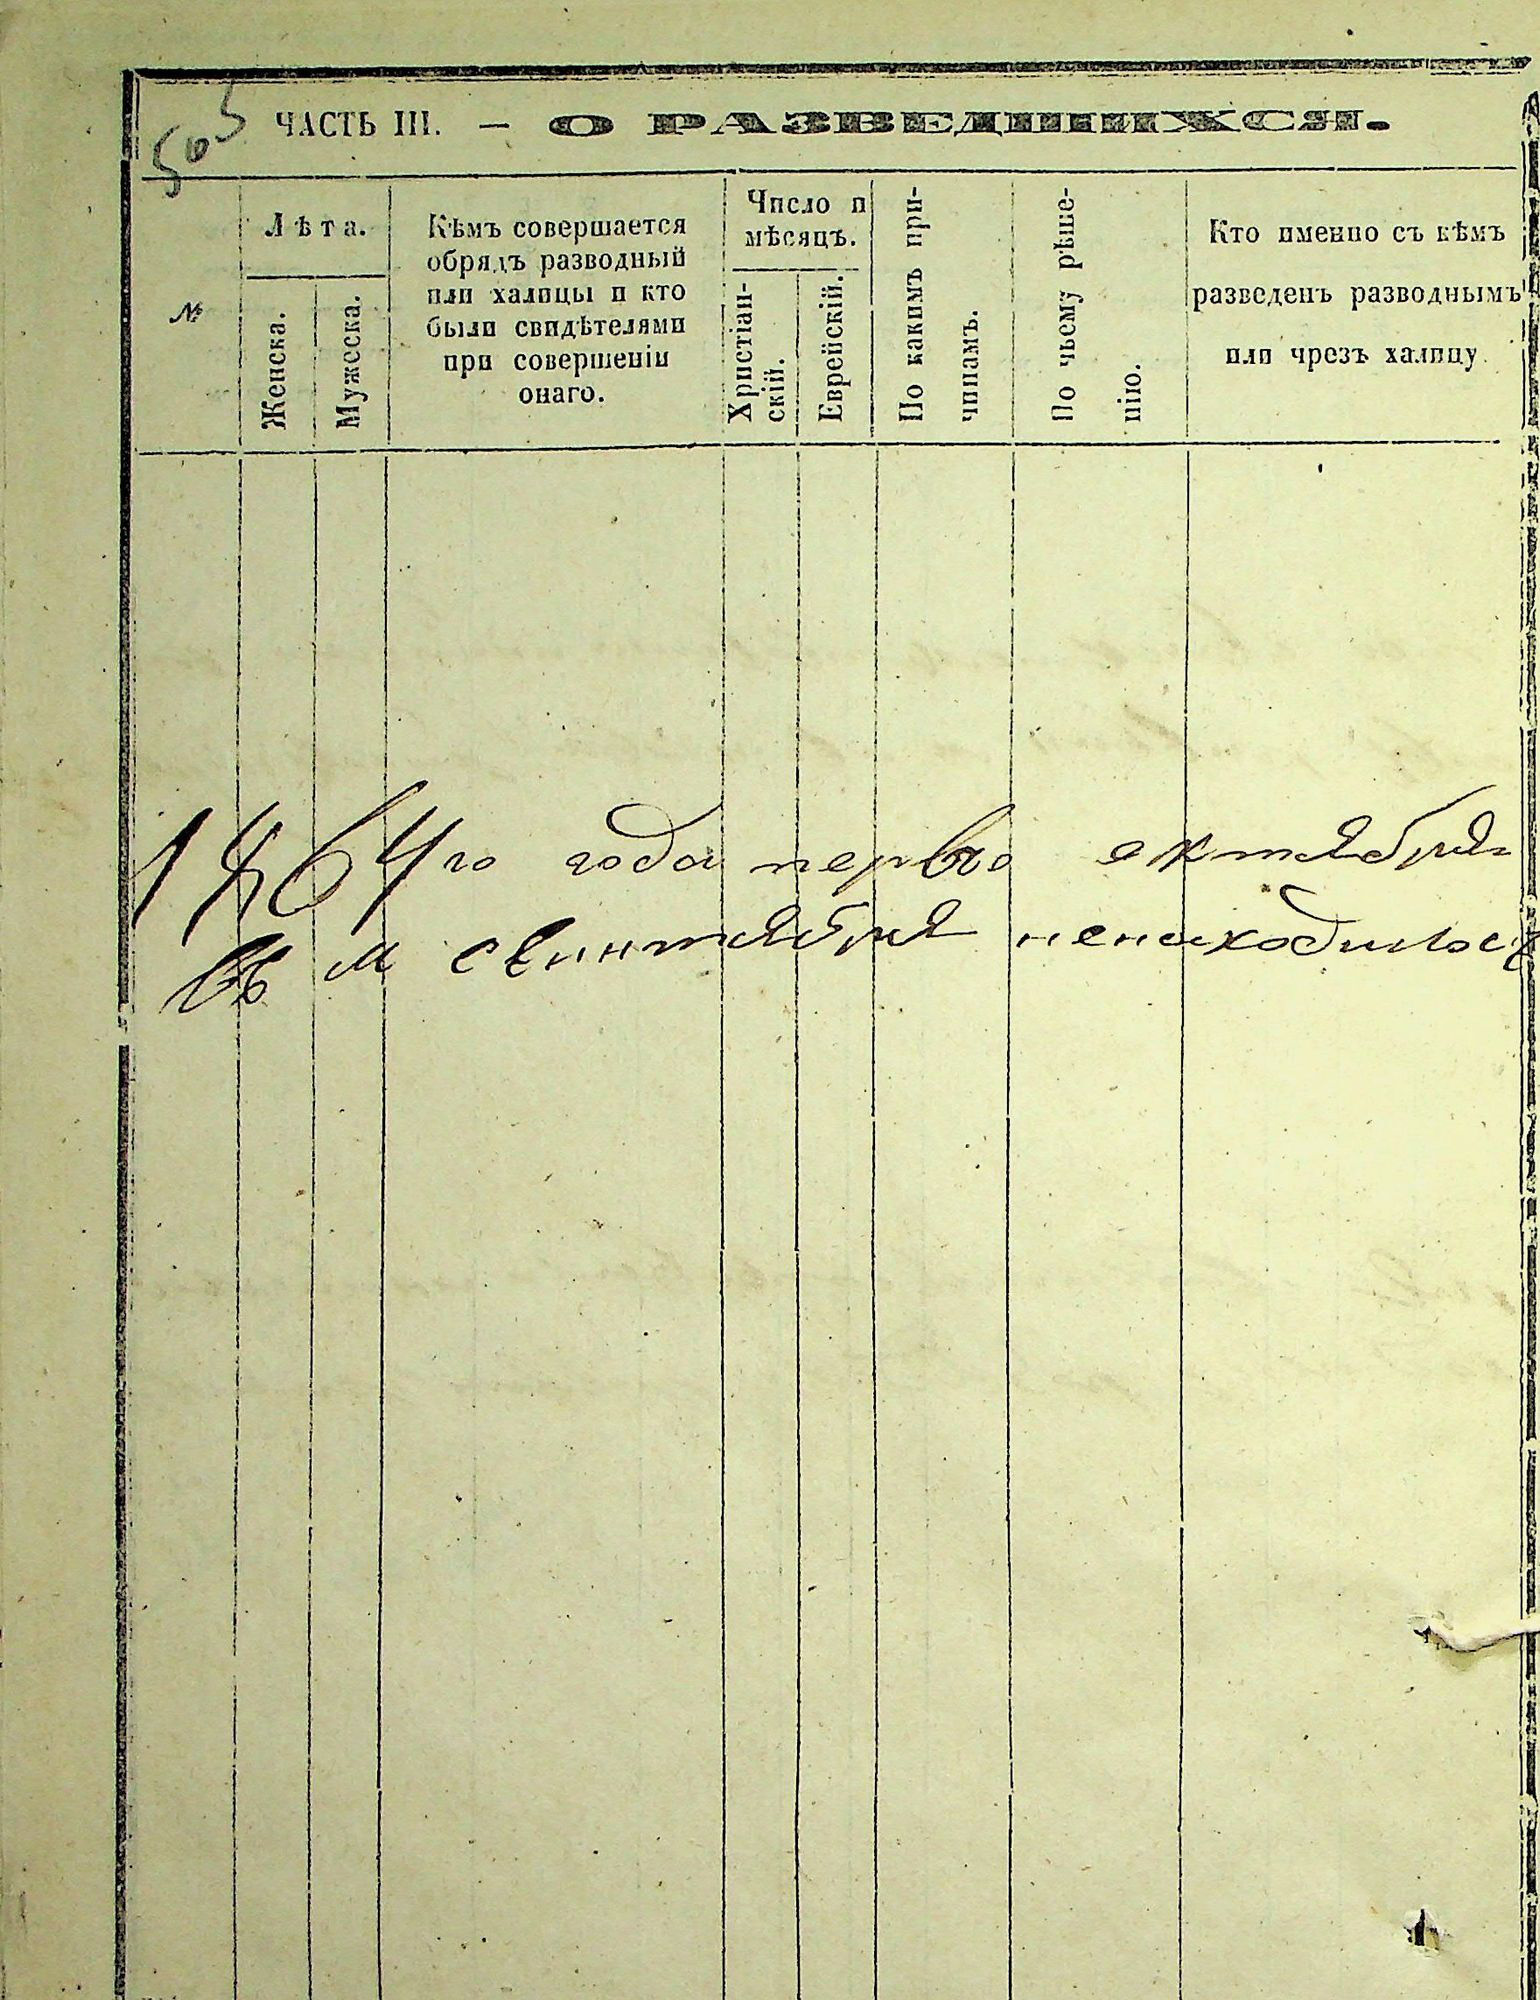 505
ЧАСТЬ III. — О РАЗВЕДШИХСЯ.
№
Лѣта.
Женска.
Мужеска.
Кѣмъ совершается
обрядъ разводный
или халицы и кто
были свидѣтелями
при совершеніи
онаго.
Число и
мѣсяцъ.
Христіан-
скій.
Еврейскій.
По какимъ при-
чинамъ.
По чьему рѣше-
нію.
Кто именно съ кѣмъ
разведенъ разводнымъ
или чрезъ халицу
1864го года перваго октября
въ м сентября